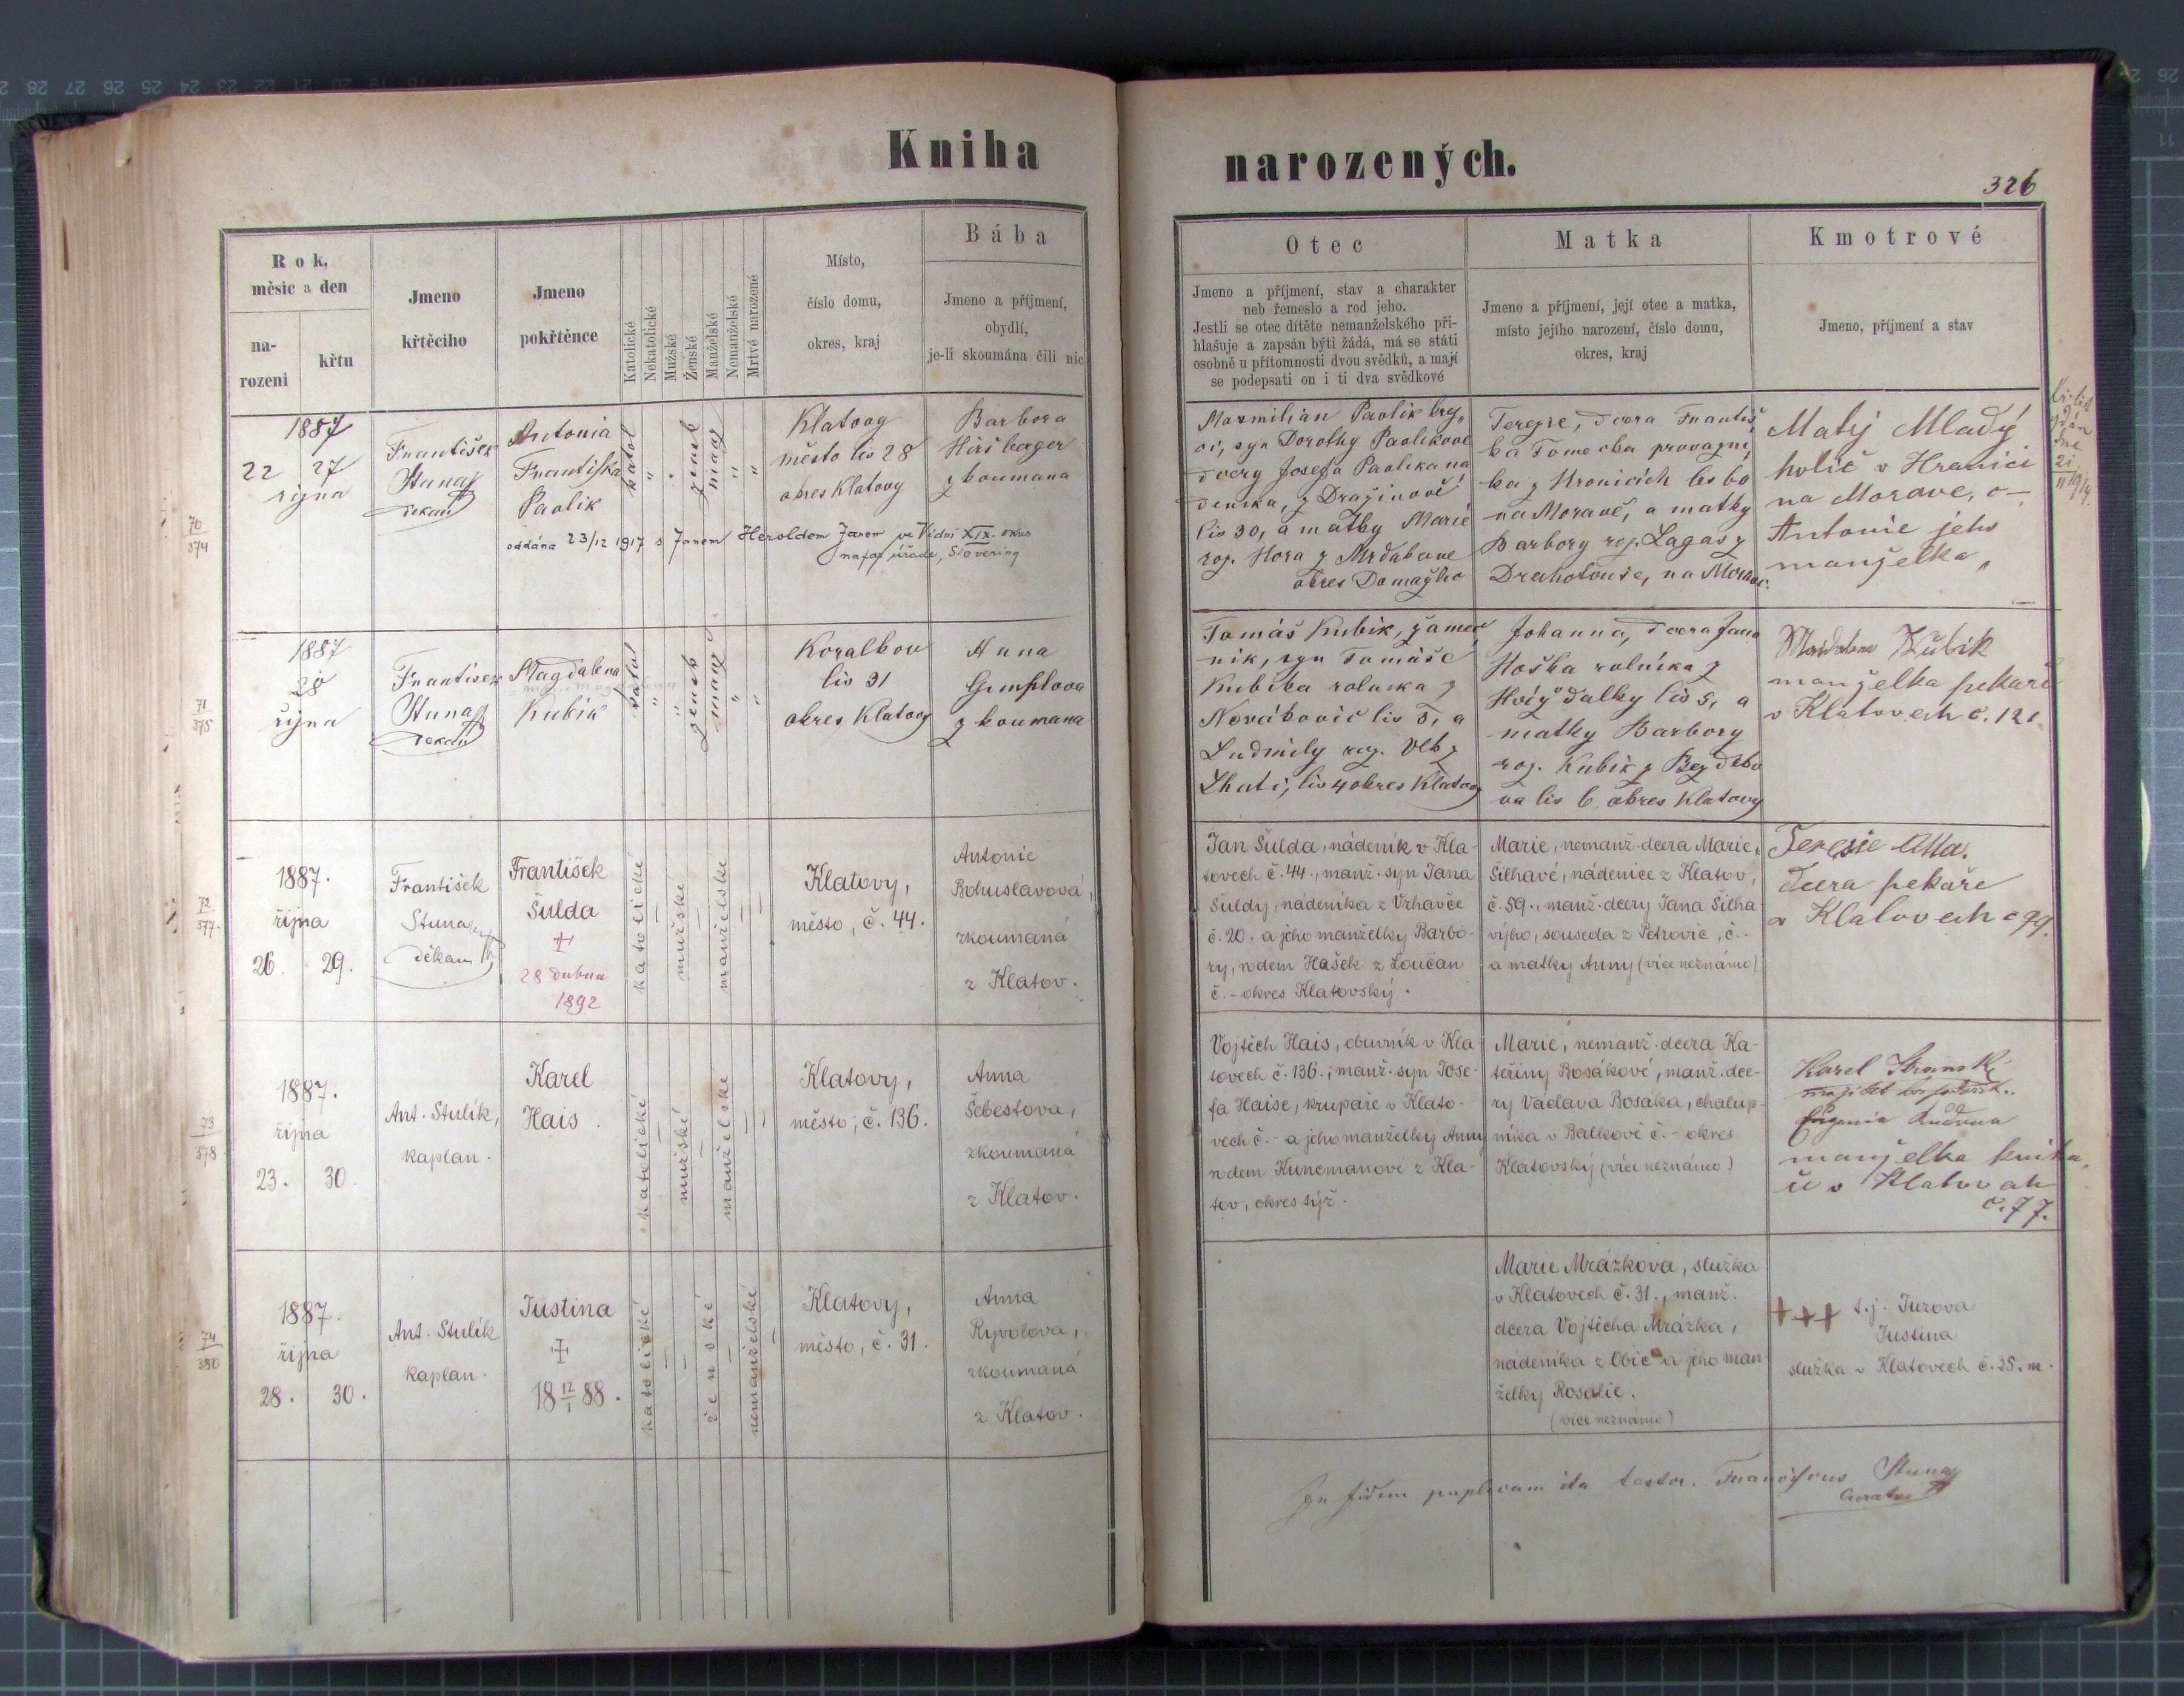 Kniha narozených.
326
Rok, měsíc a den
narození
křtu
Jmeno křtěcího
Jmeno pokřtěnce
Katolické
Nekatolické
Mužské
Ženské
Manželské
Nemanželské
Mrtvé narozené
Místo,
číslo domu,
okres, kraj
Bába
Jmeno a příjmení,
obydlí,
je-li skoumána čili nic
Otec
Jmeno a příjmení, stav a charakter
neb řemeslo a rod jeho.
Jestli se otec dítěte nemanželského při-
hlašuje a zapsán býti žádá, má se státi
osobně u přítomnosti dvou svědků, a mají
se podepsati on i ti dva svědkové
Matka
Jmeno a příjmení, její otec a matka,
místo jejího narození, číslo domu,
okres, kraj
Kmotrové
Jmeno, příjmení a stav
70
574
1887
22 27
října
František
Stuna
děkan
Antonia
Františka
Paolik
katol
žensk
manž
Klatovy
město čis 28
okres Klatovy
Barbora
Hiršberger
zkoumana
oddána 23/12 1917 s Janem Heroldem Janem ve Vídni XIX. okres
Sievering
Maxmilian Paolik
syn Dorothy Paolikove
dcery Josefa Paolika ná
deníka, z Dražinově
čis 30, a matky Marie
roz. Hora z Mrdakove
okres Domažlice
Terezie, dcera Františ
ka Tomečka provazní
ka z Hranicích čis 60
na Moravě, a matky
Barbory roz. Lagas z
Drahotouše, na Morave.
Matěj Mladý
holič v Hranici
na Morave, a
Antonie jeho
manželka,
71
575
1887
28
října
František
Stuna
děkan
Magdalena
Kubik
katol
žensk
manž
Koralkov
čis 31
okres Klatovy
Anna
zkoumana
Tomáš Kubik, zámeč
nik, syn Tomáše
Kubika rolnika z
Novákovič čis 5, a
Ludmily roz. Vlk z
Lhati, čis 4 okres Klatovy
Johanna, dcera Jana
Hoška rolníka z
čis 5, a
matky Barbory
roz. Kubik z Bezděko
va čis 6 okres Klatovy
Magdalena Kubik
manželka pekaře
v Klatovech č. 121
72
577.
1887.
října
26. 29.
František
Stuna
děkan
František
Šulda
+
28 dubna
1892
katolické
mužské
manželské
Klatovy,
město, č. 44.
Antonie
Bohuslavová,
zkoumaná
z Klatov.
Jan Šulda, nádeník v Kla-
tovech č. 44., manž. syn Jana
Šuldy, nádeníka z Vrhavče
č. 20. a jeho manželky Barbo-
ry, rodem Hašek z Loučan
č. - okres Klatovský.
Marie, nemanž. dcera Marie
Šilhavé, nádenice z Klatov,
č. 59., manž. dcery Jana Šilha
výho, souseda z Petrovic, č. -
a matky Anny (více neznámo)
Terezie
dcera pekaře
v Klatovech č 99.
73
578
1887.
října
23. 30.
Ant. Stulík,
kaplan.
Karel
Hais.
katolické
mužské
manželské
Klatovy,
město, č. 136.
Anna
Šebestova,
zkoumaná
z Klatov.
Vojtěch Hais, obuvník v Kla
tovech č. 136.; manž. syn Jose-
fa Haise, krupaře v Klato-
vech č. - a jeho manželky Anny
rodem Kunemanové z Kla-
tov, okres týž.
Marie, nemanž. dcera Ka-
teřiny Bosákové, manž. dce-
ry Václava Bosáka, chalup-
níka v Balkově č. - okres
Klatovský (více neznámo)
Karel Stranský
manželka
v Klatovach
č. 77.
74
380
1887.
října
28. 30.
Ant. Stulík
kaplan.
Justina
18 12/1 88.
katolické
ženské
nemanželské
Klatovy,
město, č. 31.
Anna
Ryvolova,
zkoumaná
z Klatov.
Marie Mrázkova, služka
v Klatovech č. 31., manž.
dcera Vojtěcha Mrázka,
nádeníka z Obic a jeho man
želky Rosalie.
(více neznámo)
+++ t.j. Juzova
Justina
služka v Klatovech č. 25. m.
In fidem ita testor. Franciscus Stuna